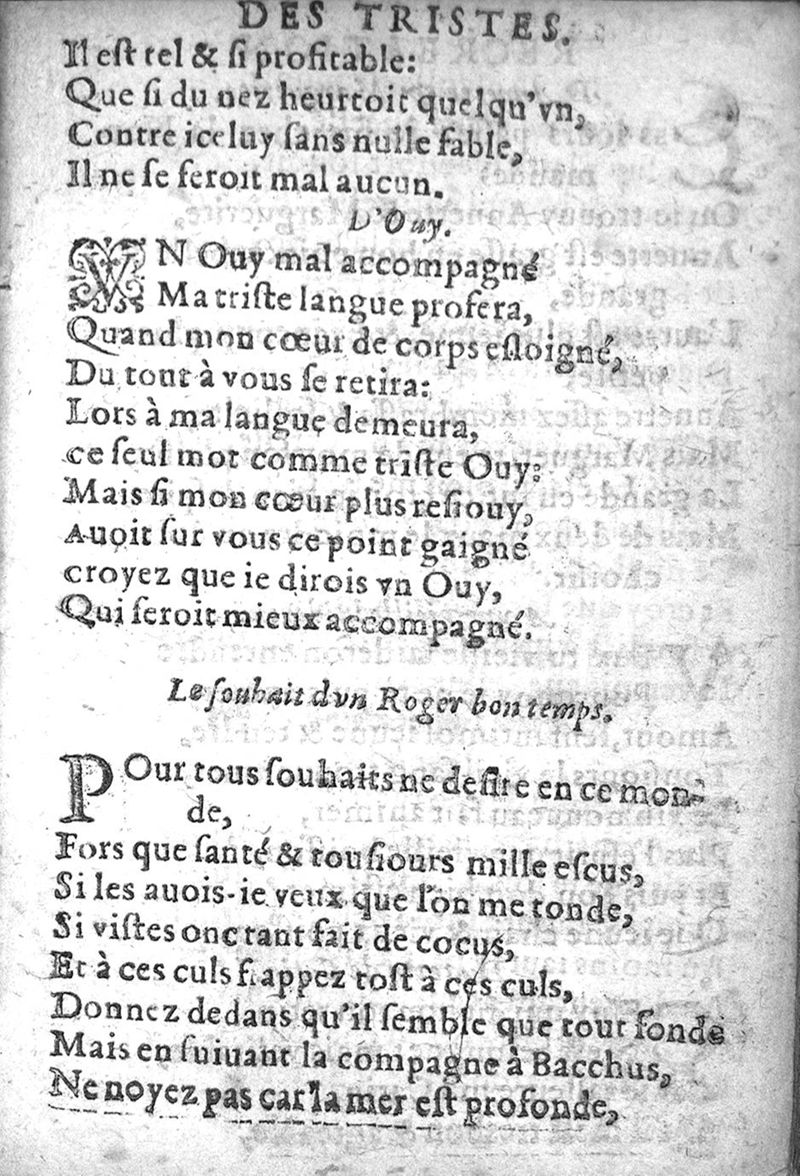 DES TRISTES.
Il est tel & si profitable:
Que si du nez heurtoit quelqu'vn,
Contre iceluy sans nulle fable,
Il ne se feroit mal aucun.
D'Ouy.
VN Ouy mal accompagné
Ma triste langue profera,
Quand mon cœur de corps esloigné,
Du tout à vous se retira:
Lors à ma langue demeura,
ce seul mot comme triste Ouy:
Mais si mon cœur plus resiouy,
Auoit sur vous ce point gaigné
croyez que ie dirois vn Ouy,
Qui seroit mieux accompagné.
Le souhait dvn Roger bon temps.
POur tous souhaits ne desire en ce mon-
de,
Fors que santé & tousiours mille escus,
Si les auois-ie veux que l'on me tonde,
Si vistes onc tant fait de cocus,
Et à ces culs frappez tost à ces culs,
Donnez dedans qu'il semble que tout fonde
Mais en suiuant la compagne à Bacchus,
Ne noyez pas car la mer est profonde,